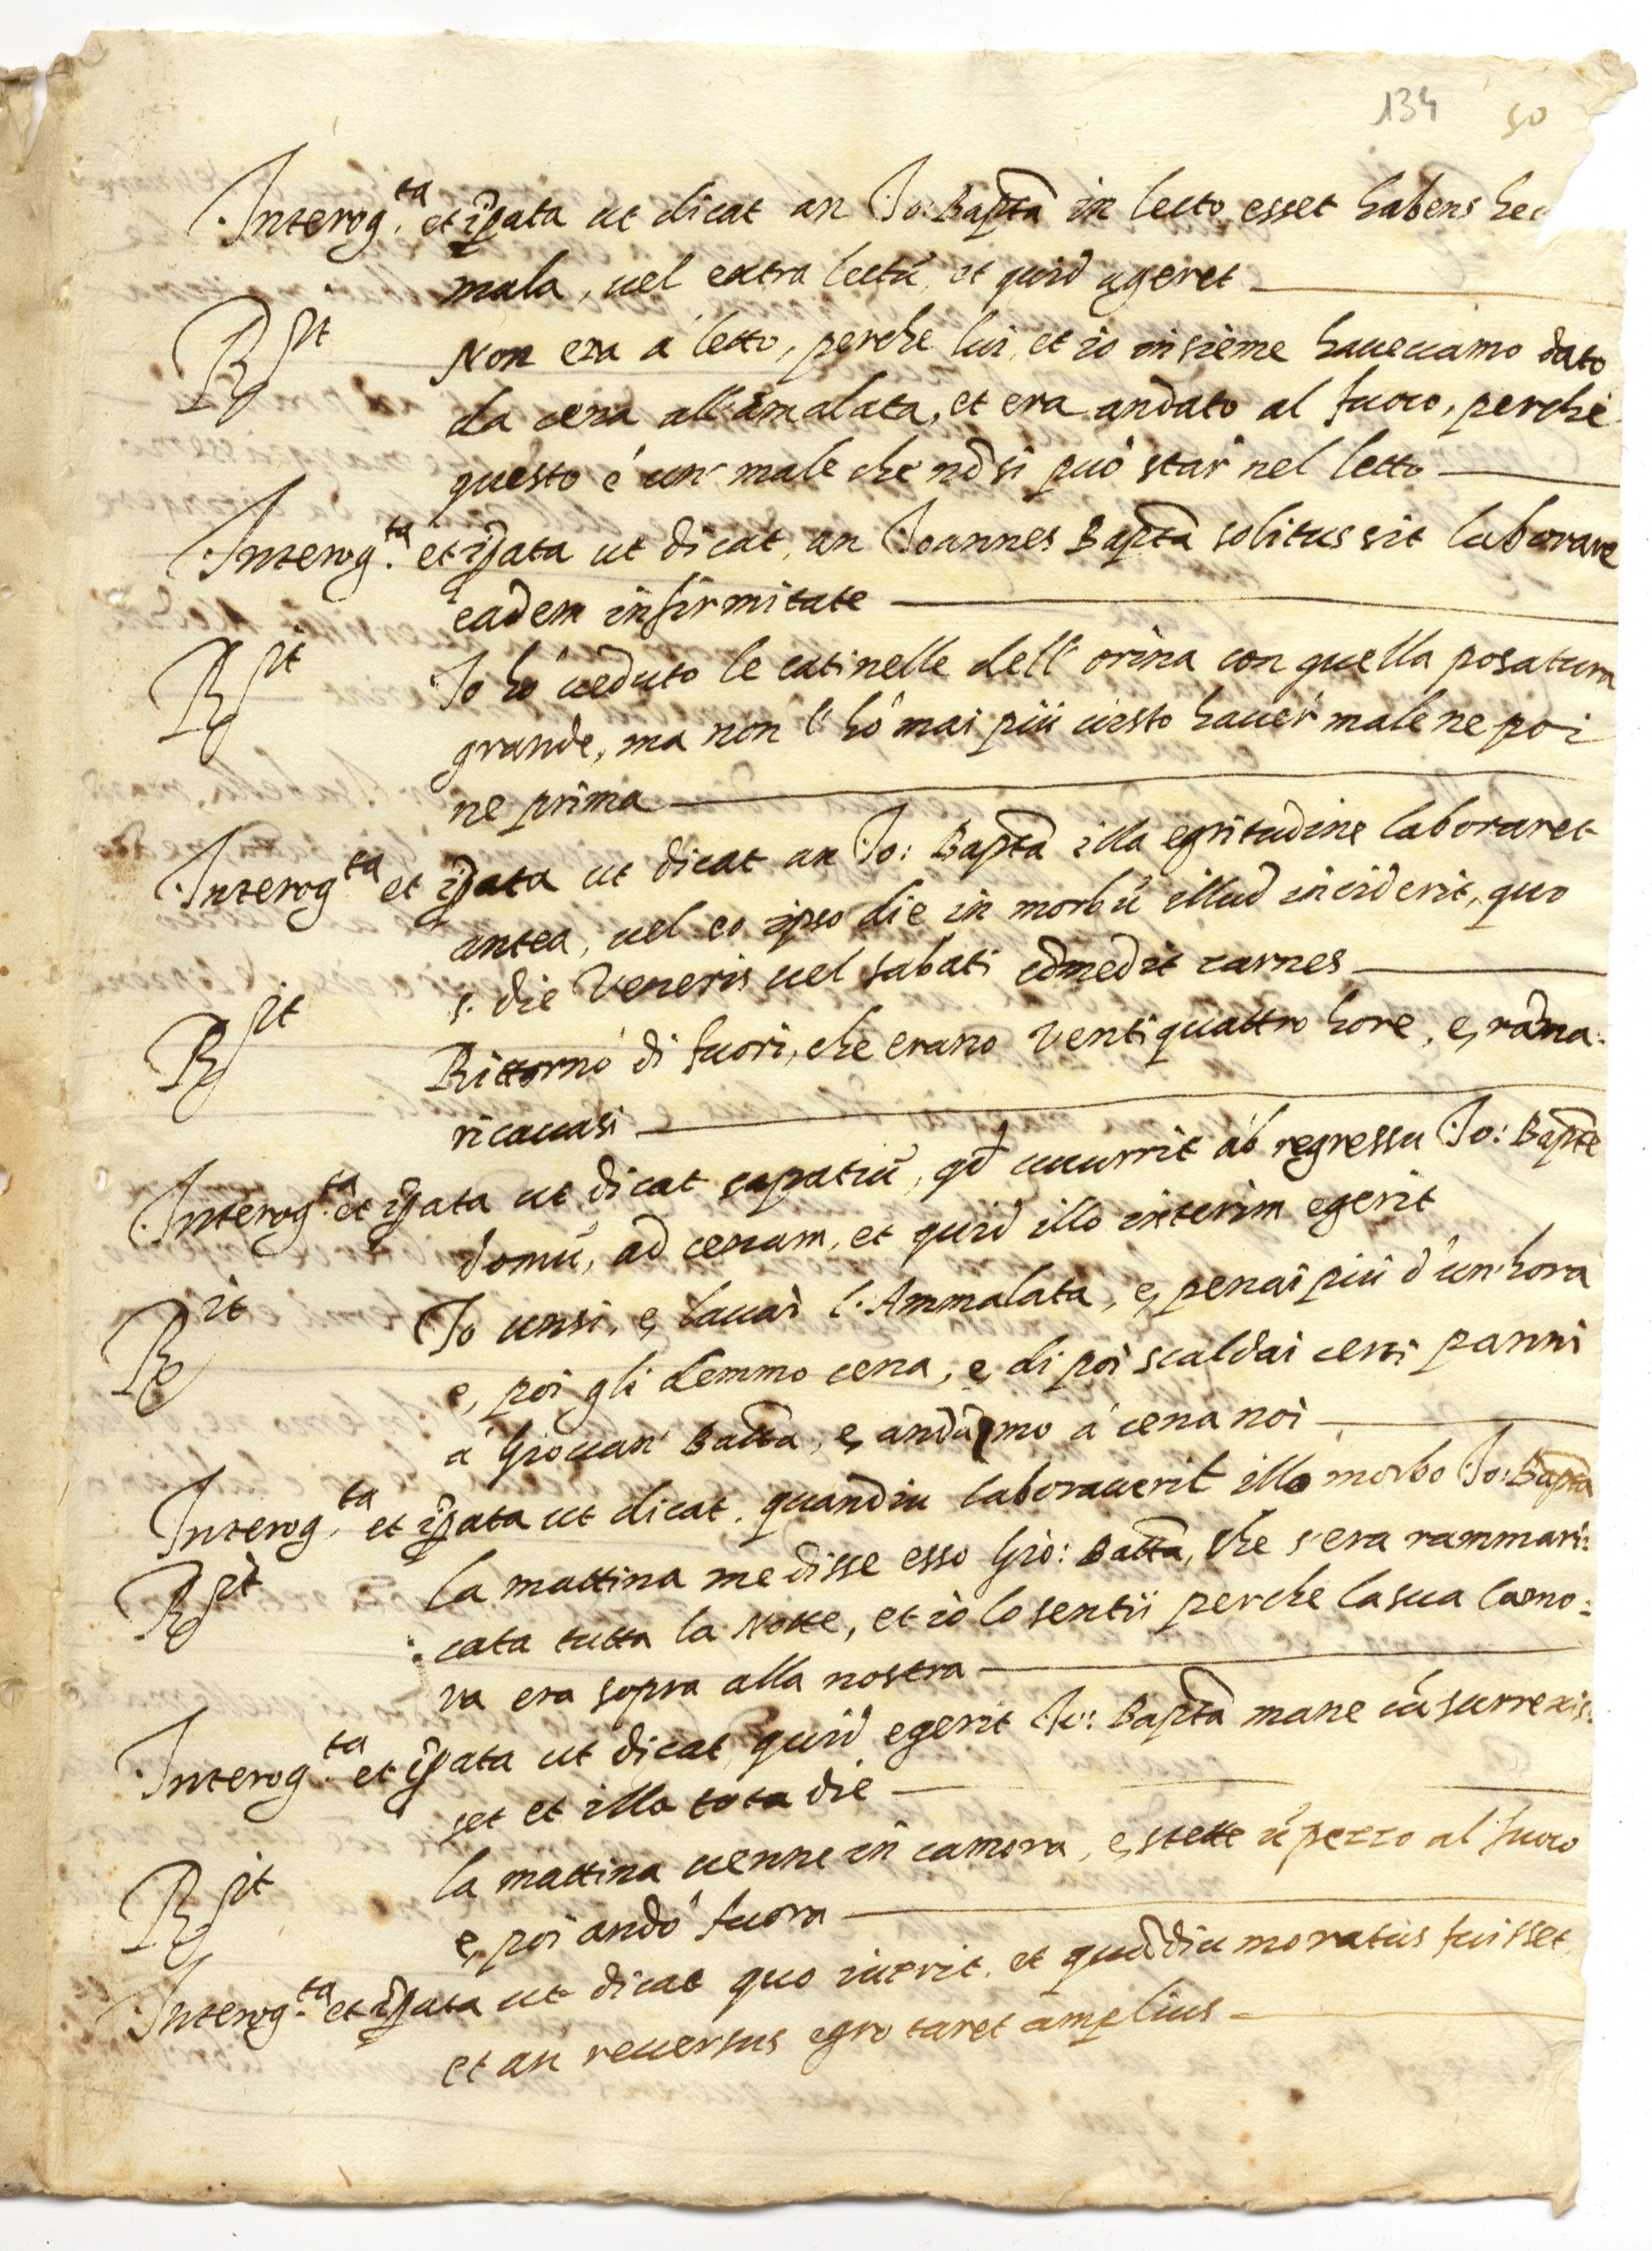 134 50
Interog.ta et ip̃ata ut dicat an Jo: Bapta in lecto esset habens hec
mala, uel extra lectũ, et quid ageret
Rſit Non era á letto, perche lui, et io insieme haueuamo dato
da cena all'amalata, et era andato al fuoco, perche
questo é un' male che nõ si puó star nel letto
Interog.ta et ip̃ata ut dicat, an Joannes Bapta solitus sit laborare
eadem infirmitate
Rſit Io hó ueduto le catinelle dell' orina con quella posatura
grande, ma non l' hó mai piú uisto hauer male ne poi
ne prima
Interog.ta et ip̃ata ut dicat an Jo: Bapta illa egritudine laboraret
antea, uel eo ipso die in morbũ illud inciderit, quo
s. die Veneris uel sabati cõmedit carnes
Rſit Rittornó di fuori, che erano ventiquattro hore, e, rãma:
ricauasi
Interog.ta et ip̃ata ut dicat sapatiũ, qd̃ cucurrit ab regressu Jo: Baptẽ
domũ, ad cenam, et quid illo interim egerit
Rit Io unsi, e, lauai l'Ammalata, e, penai piú d'un'hora
e, poi gli demmo cena, e, di poi scaldai certi panni
á Giouan' Batta, e, andãmo á cena noi
Interog.ta et ip̃ata ut dicat, quandiu laborauerit illo morbo Jo: Bapta
Rſit La mattina me disse esso Gio: Batta, che s'era rammari:
:cata tutta la Notte, et io lo sentii perche la sua camo:
ra era sopra alla nostra
Interog.ta et ip̃ata ut dicat quid egerit Jo: Bapta mane cũ surrexis:
set et illa tota die
Rſit la mattina uenne in camora, e, stette ũ pezzo al fuoco
e, poi andó fuora
Interog.ta et ip̃ata ut dicat quo iuerit, et quãdiu moratus fuisset,
et an reuersus egrotaret amplius